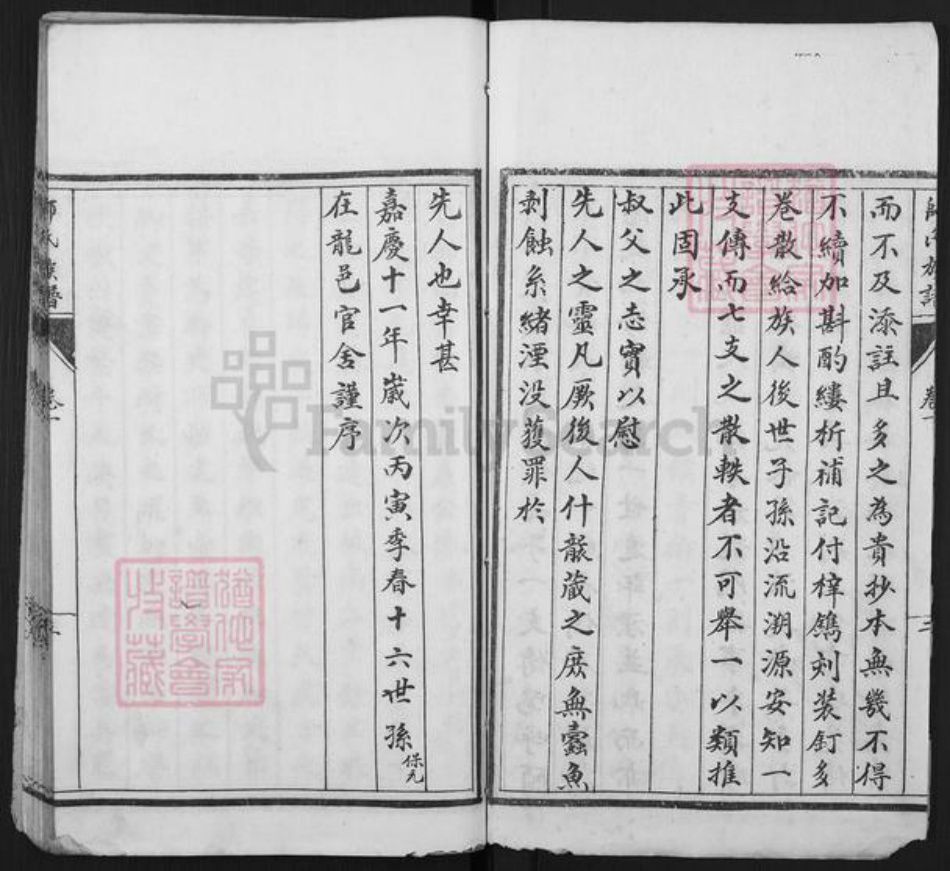 而不及添註且多之為貴抄本無幾不得
不續加斟酌縷析補記付梓鐫刻装釘多
卷散給族人後世子孫沿流溯源安知一
支傳而七支之散軼者不可舉一以類推
此固承
叔父之志實以慰
先人之靈凡厥後人什襲蔵之庶無蠹魚
剥蝕系緒湮没獲罪於
先人也幸甚
嘉慶十一年歲次丙寅季春十六世孫保元
在龍邑官舍謹序
師氏族譜
卷一
三
FamilySearch